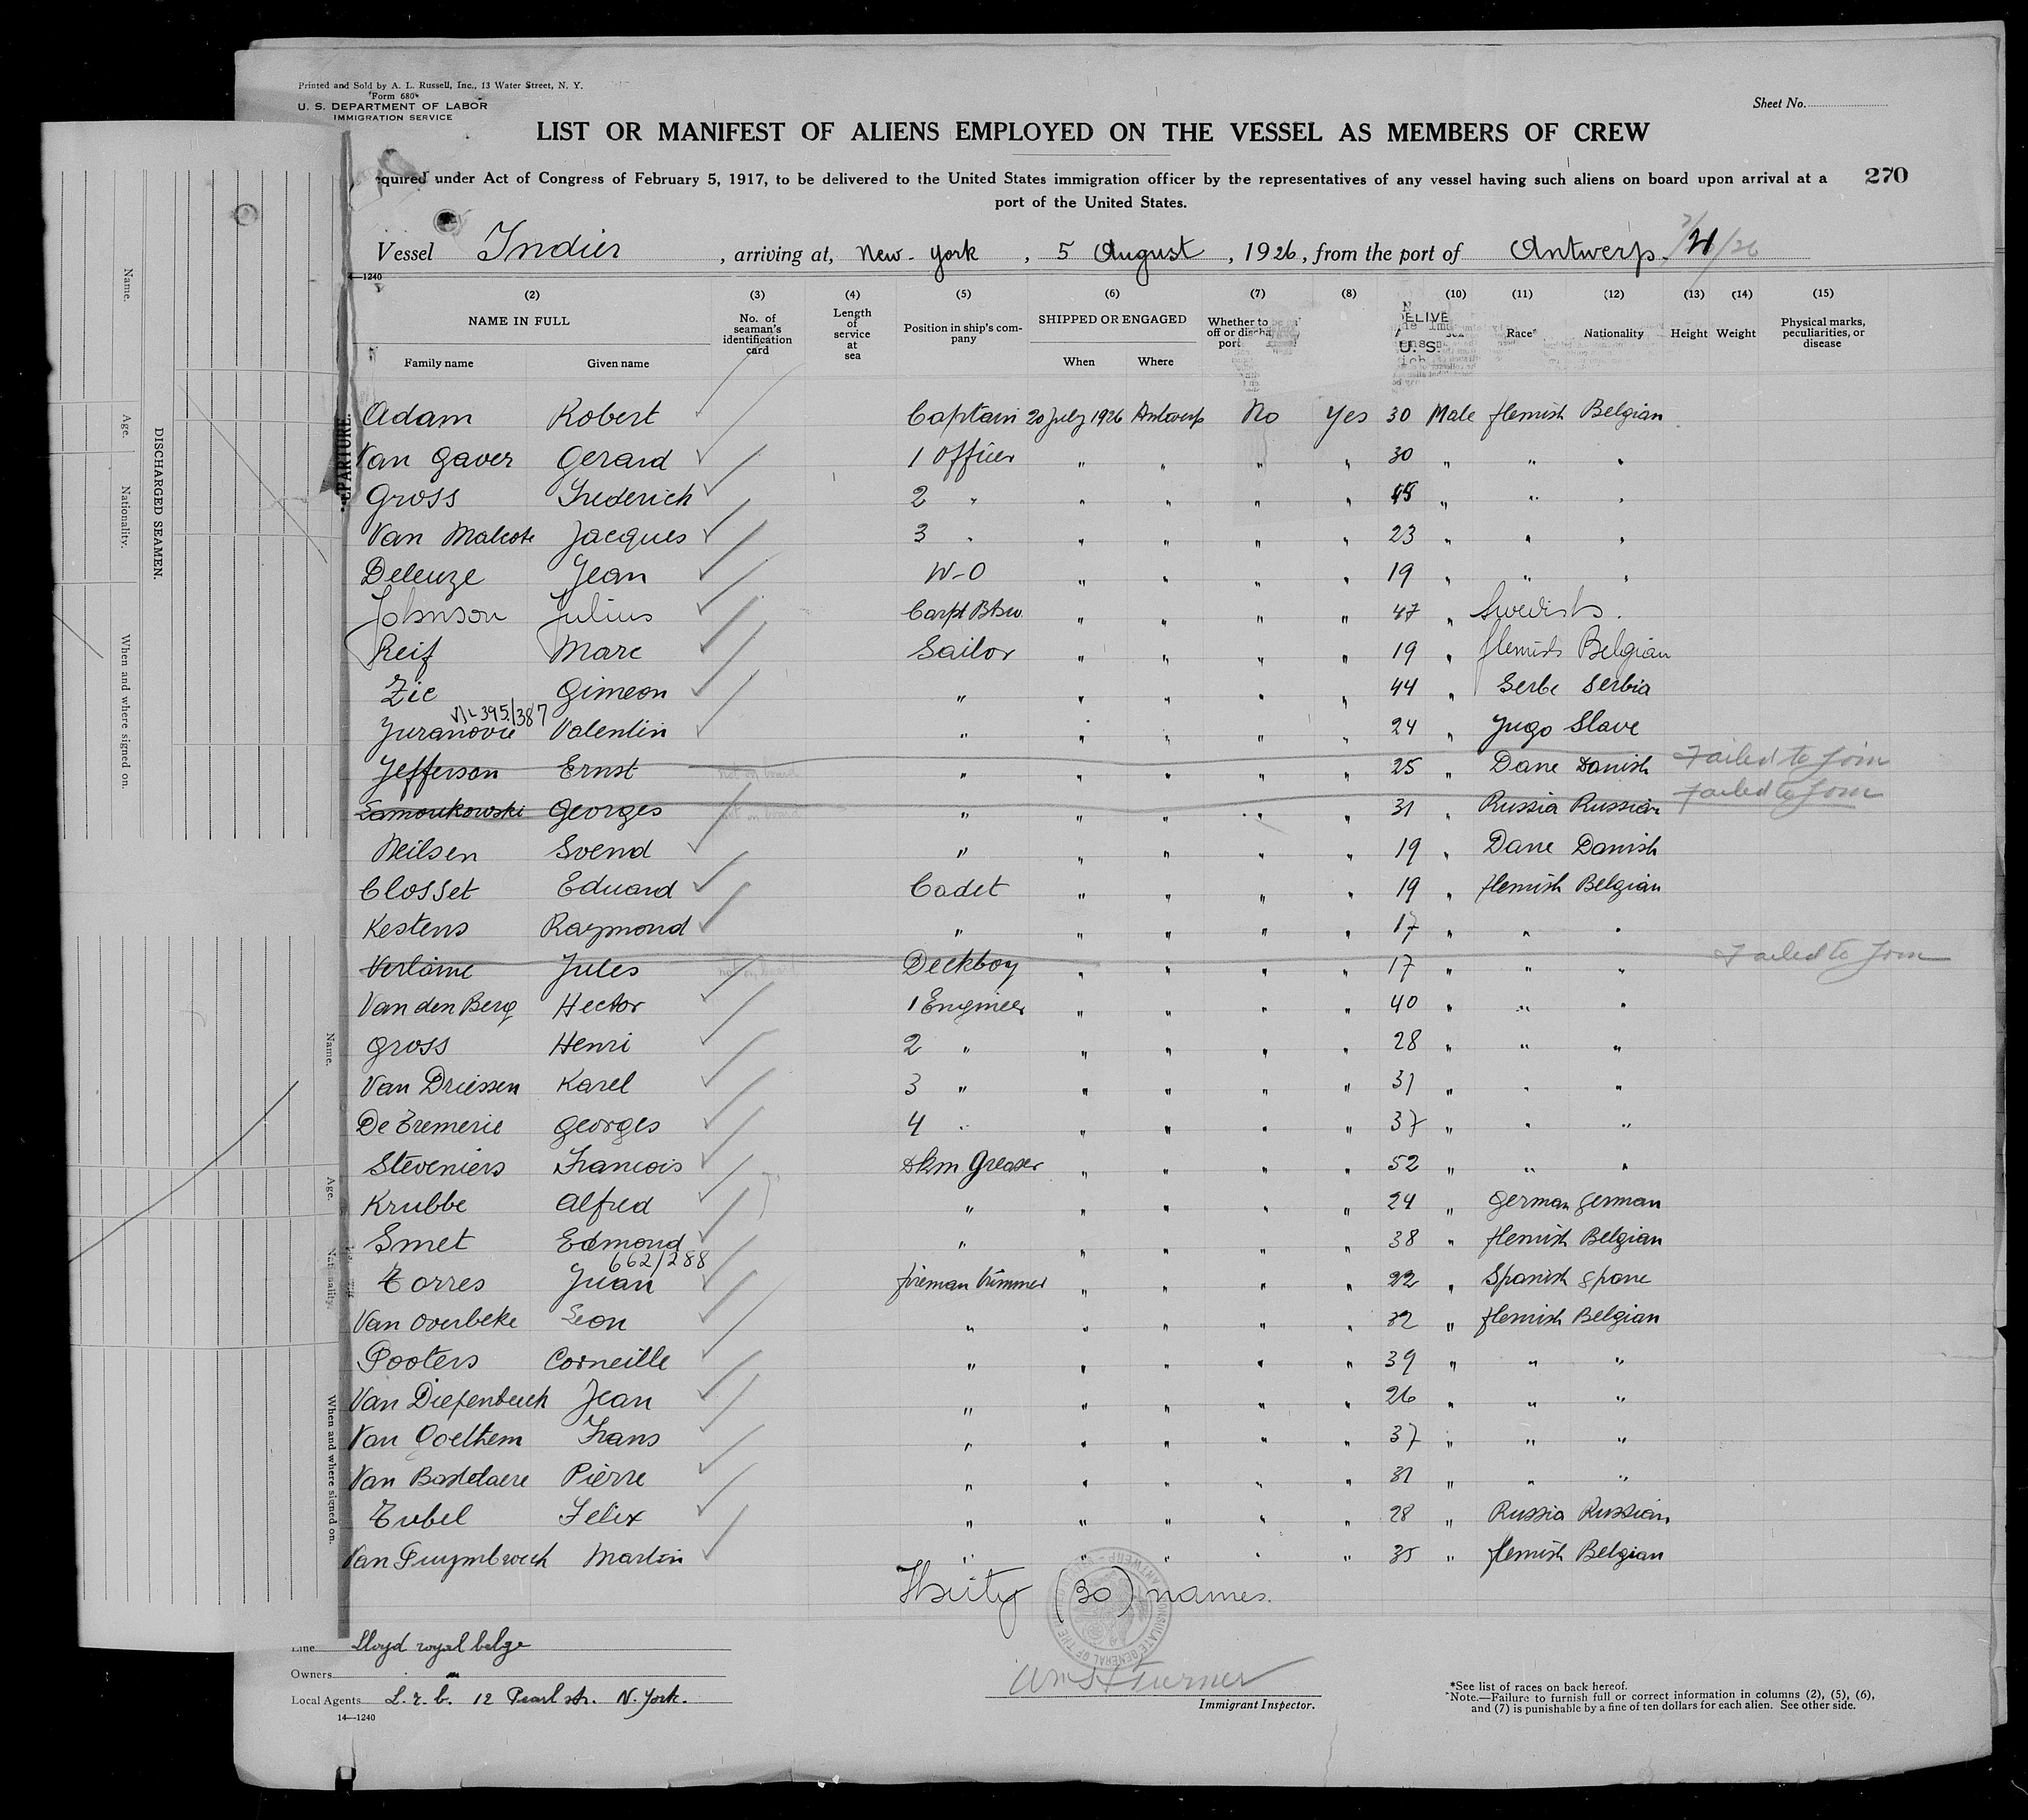 Printed and Sold by A. L. Russell, Inc., 13 Water Street, N. Y.
Form 680
U. S. DEPARTMENT OF LABOR
IMMIGRATION SERVICE
Sheet No.
LIST OR MANIFEST OF ALIENS EMPLOYED ON THE VESSEL AS MEMBERS OF CREW
quired under Act of Congress of February 5, 1917, to be delivered to the United States immigration officer by the representatives of any vessel having such aliens on board upon arrival at a
port of the United States.
270
Vessel Indier, arriving at, New-York, 5 August, 1926, from the port of Antwerp.
(2) (3) (4) (5) (6) (7) (8) (10) (11) (12) (13) (14) (15)
NAME IN FULL
Family name Given name
No. of seaman's identification card
Length of service at sea
Position in ship's company
SHIPPED OR ENGAGED
When Where
Whether to
Race* Nationality Height Weight
Physical marks, peculiarities, or disease
Adam Robert Captain 20 July 1926 Antwerp No Yes 30 Male flemish Belgian
Van Gaver Gerard 1 Officer " " " " 30 " " "
Gross Frederich 2 " " " " " " " "
Van Malcote Jacques 3 " " " " " 23 " " "
Deleuze Jean W-O " " " " 19 " " "
Johnson Julius Carpt Btsw. " " " " 47 " Swedish.
Reif Marc Sailor " " " " 19 " flemish Belgian
Zic Gimeon " " " " " 44 " Serbe Serbia
395/387
Juranovic Valentin " " " " " 24 " Jugo Slave
Jefferson Ernst not on board " " " " " 25 " Dane Danish Failed to Join
Samoukowski Georges not on board " " " " " 31 " Russia Russian Failed to Join
Neilsen Svend " " " " " 19 " Dane Danish
Closset Eduard Cadet " " " " 19 " flemish Belgian
Kestens Raymond " " " " " 17 " " "
Verlaine Jules not on board Deckboy " " " " 17 " " " Failed to Join
Van den Berg Hector 1 Engineer " " " " 40 " " "
Gross Henri 2 " " " " " 28 " " "
Van Driessen Karel 3 " " " " " 31 " " "
De Tremerie Georges 4 " " " " " 37 " " "
Steveniers Francois Dkm Greaser " " " " 52 " " "
Krubbe Alfred " " " " " 24 " German German
Smet Edmond " " " " " 38 " flemish Belgian
662/288
Torres Juan fireman trimmer " " " " 22 " Spanish Spane
Van Overbeke Leon " " " " " 32 " flemish Belgian
Pooters Corneille " " " " " 39 " " "
Van Diefenbeck Jean " " " " " 26 " " "
Van Goethem Frans " " " " " 37 " " "
Van Basdelaere Pierre " " " " " 31 " " "
Tubel Felix " " " " " 28 " Russia Russian
Van Puymbroeck Martin " " " " " 35 " flemish Belgian
Thirty (30) names.
Line Lloyd royal belge
Owners "
Local Agents L. r. b. 12 Pearl str. N. York.
14—1240
Wm H Turner
Immigrant Inspector.
*See list of races on back hereof.
Note.—Failure to furnish full or correct information in columns (2), (5), (6),
and (7) is punishable by a fine of ten dollars for each alien. See other side.
DISCHARGED SEAMEN.
Name. Age. Nationality. When and where signed on.
Name. Age. Nationality. When and where signed on.